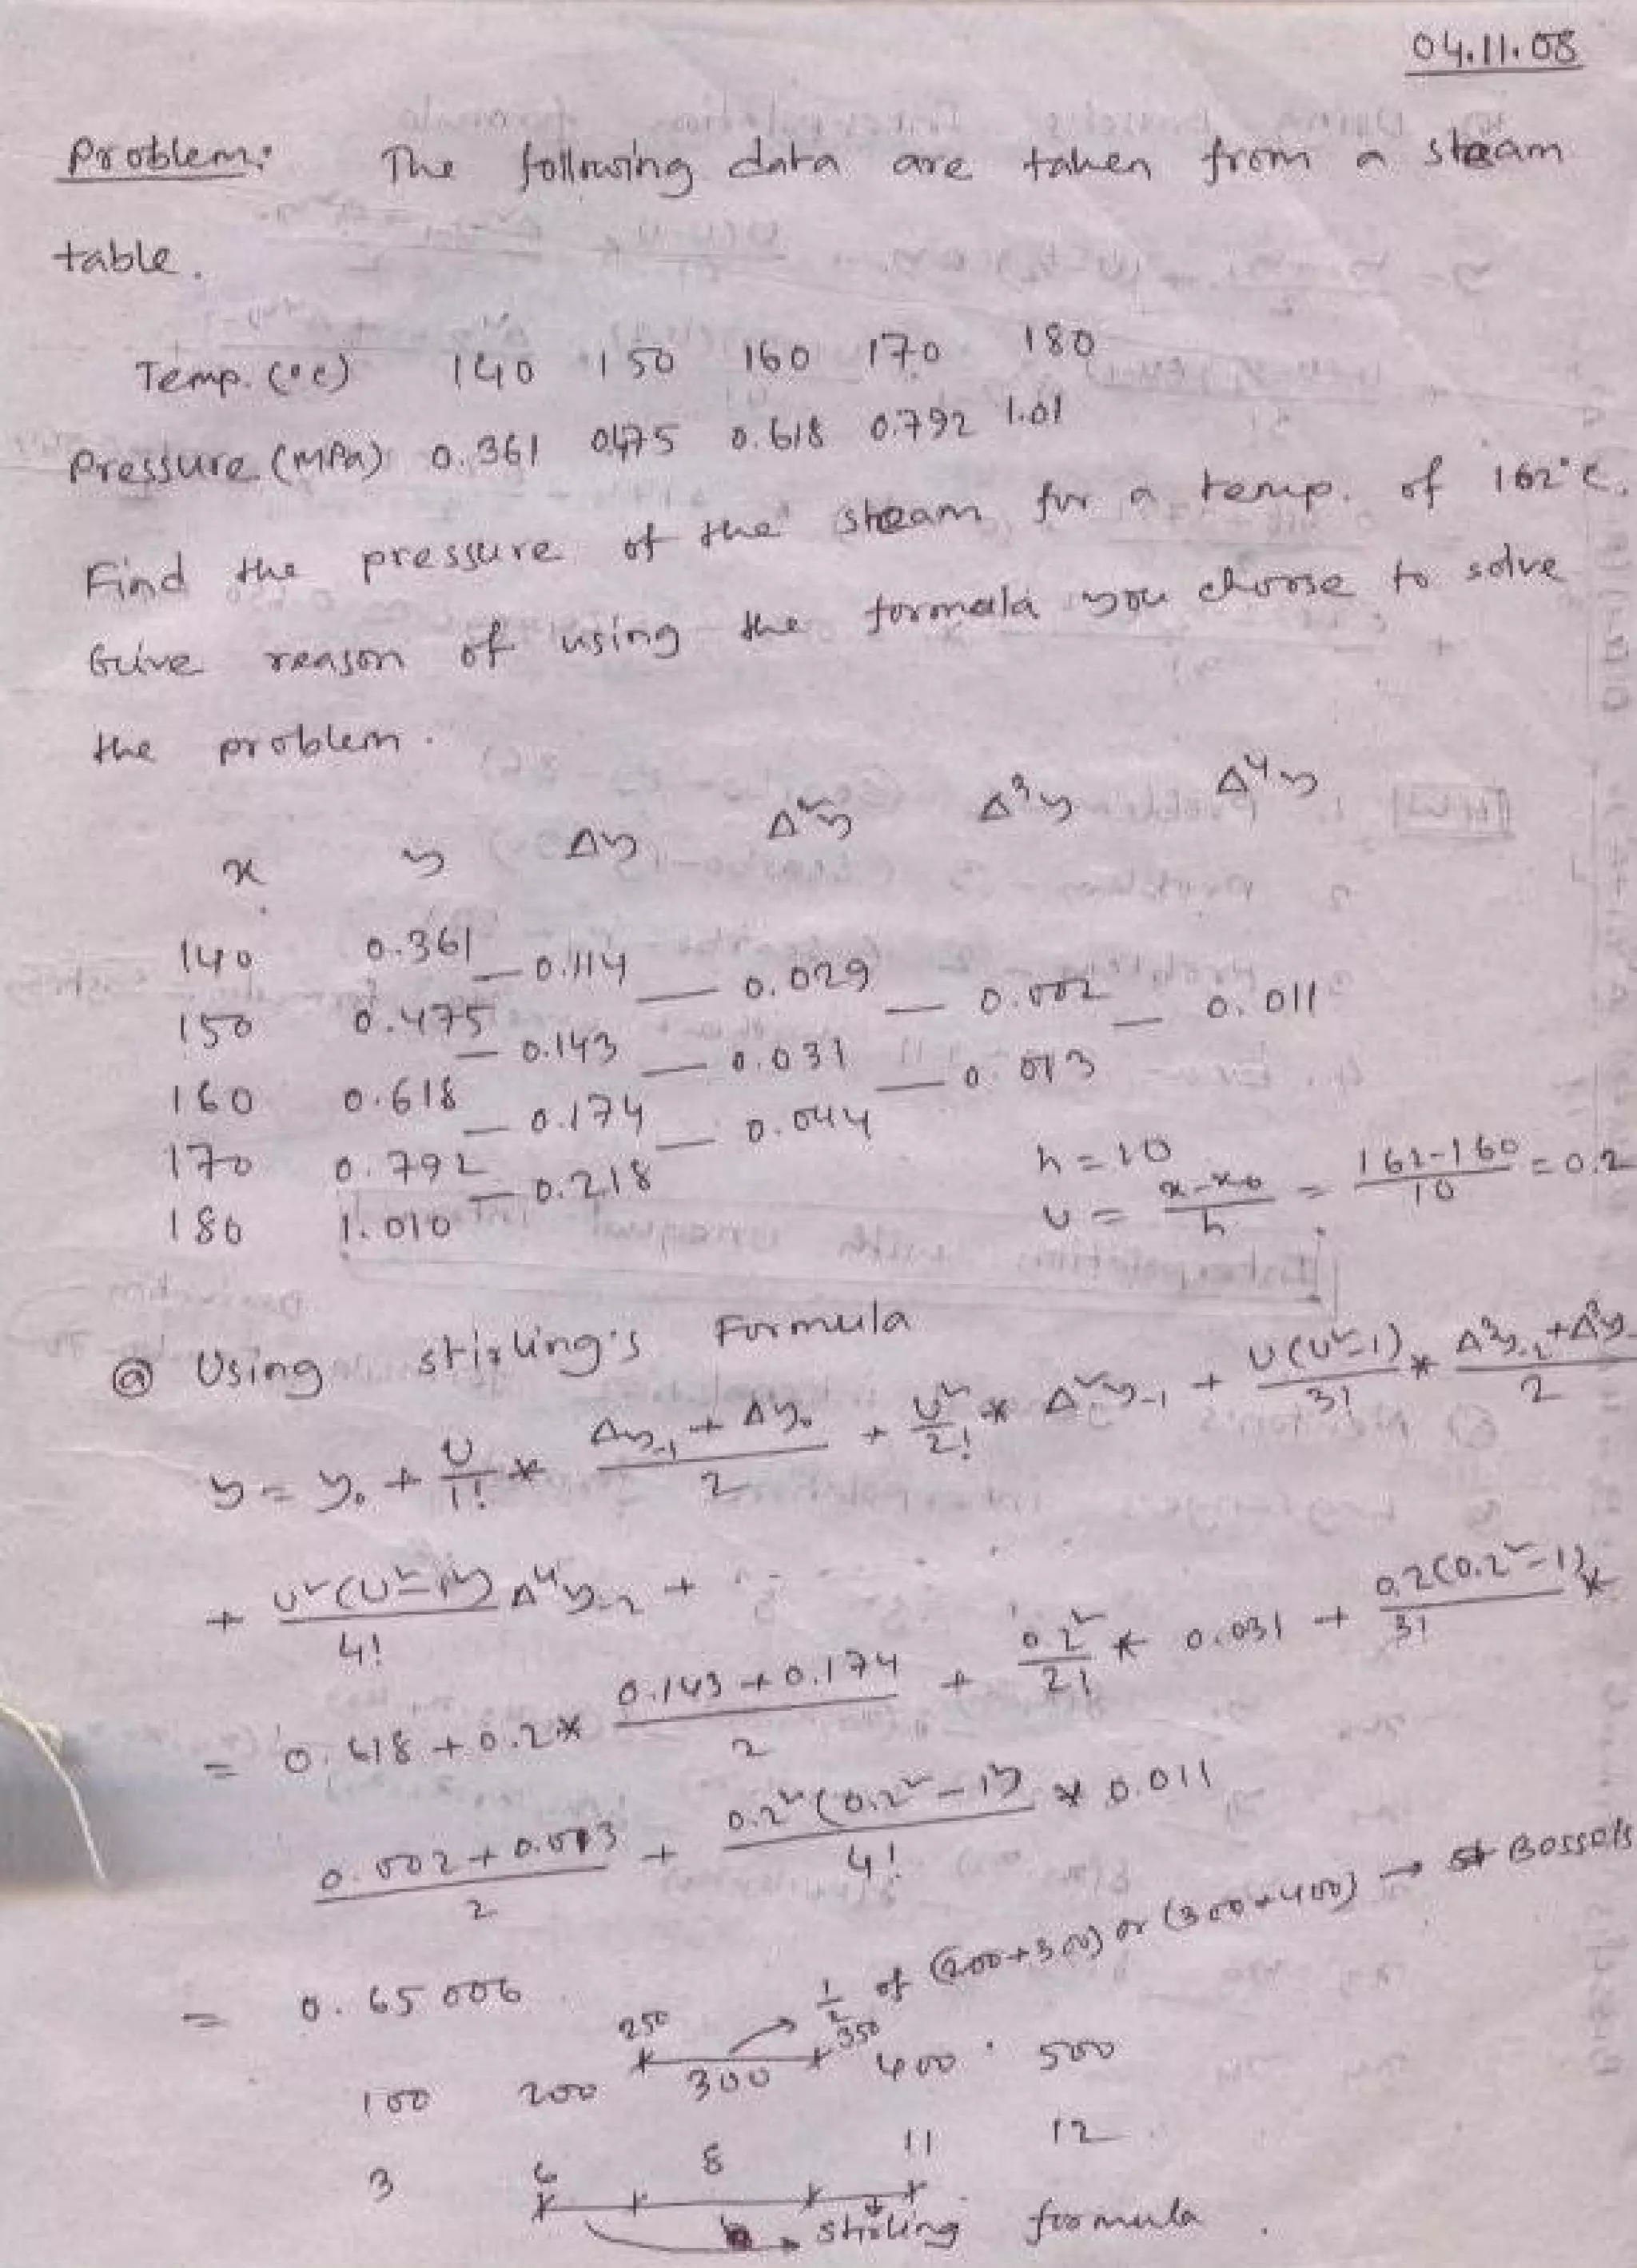 04.11.08
Problem: The following data are taken from a steam
table.
Temp. (°c) 140 150 160 170 180
Pressure (MPa) 0.361 0.475 0.618 0.792 1.01
Find the pressure of the steam for a temp. of 162°c.
Give reason of using the formula you choose to solve
the problem.
x y Δy Δ²y Δ³y Δ⁴y
140 0.361 — 0.114 — 0.029 — 0.002 — 0.011
150 0.475 — 0.143 — 0.031 — 0.013
160 0.618 — 0.174 — 0.044
170 0.792 — 0.218
180 1.010
h = 10
u = (x-x₀)/h = (162-160)/10 = 0.2
ⓐ Using stirling's Formula
y = y₀ + u/1! * (Δy₋₁ + Δy₀)/2 + u²/2! * Δ²y₋₁ + u(u²-1)/3! * (Δ³y₋₂ + Δ³y₋)/2
+ u²(u²-1²)/4! Δ⁴y₋₂ + - - - -
= 0.618 + 0.2 * (0.143 + 0.174)/2 + 0.2²/2! * 0.031 + 0.2(0.2²-1)/3! *
(0.002 + 0.013)/2 + 0.2²(0.2²-1²)/4! * 0.011
= 0.65006
1/2 of (200+300) or (300+400) → Bossels
250 350
100 200 300 400 500
3 6 8 11 12
stirling formula.